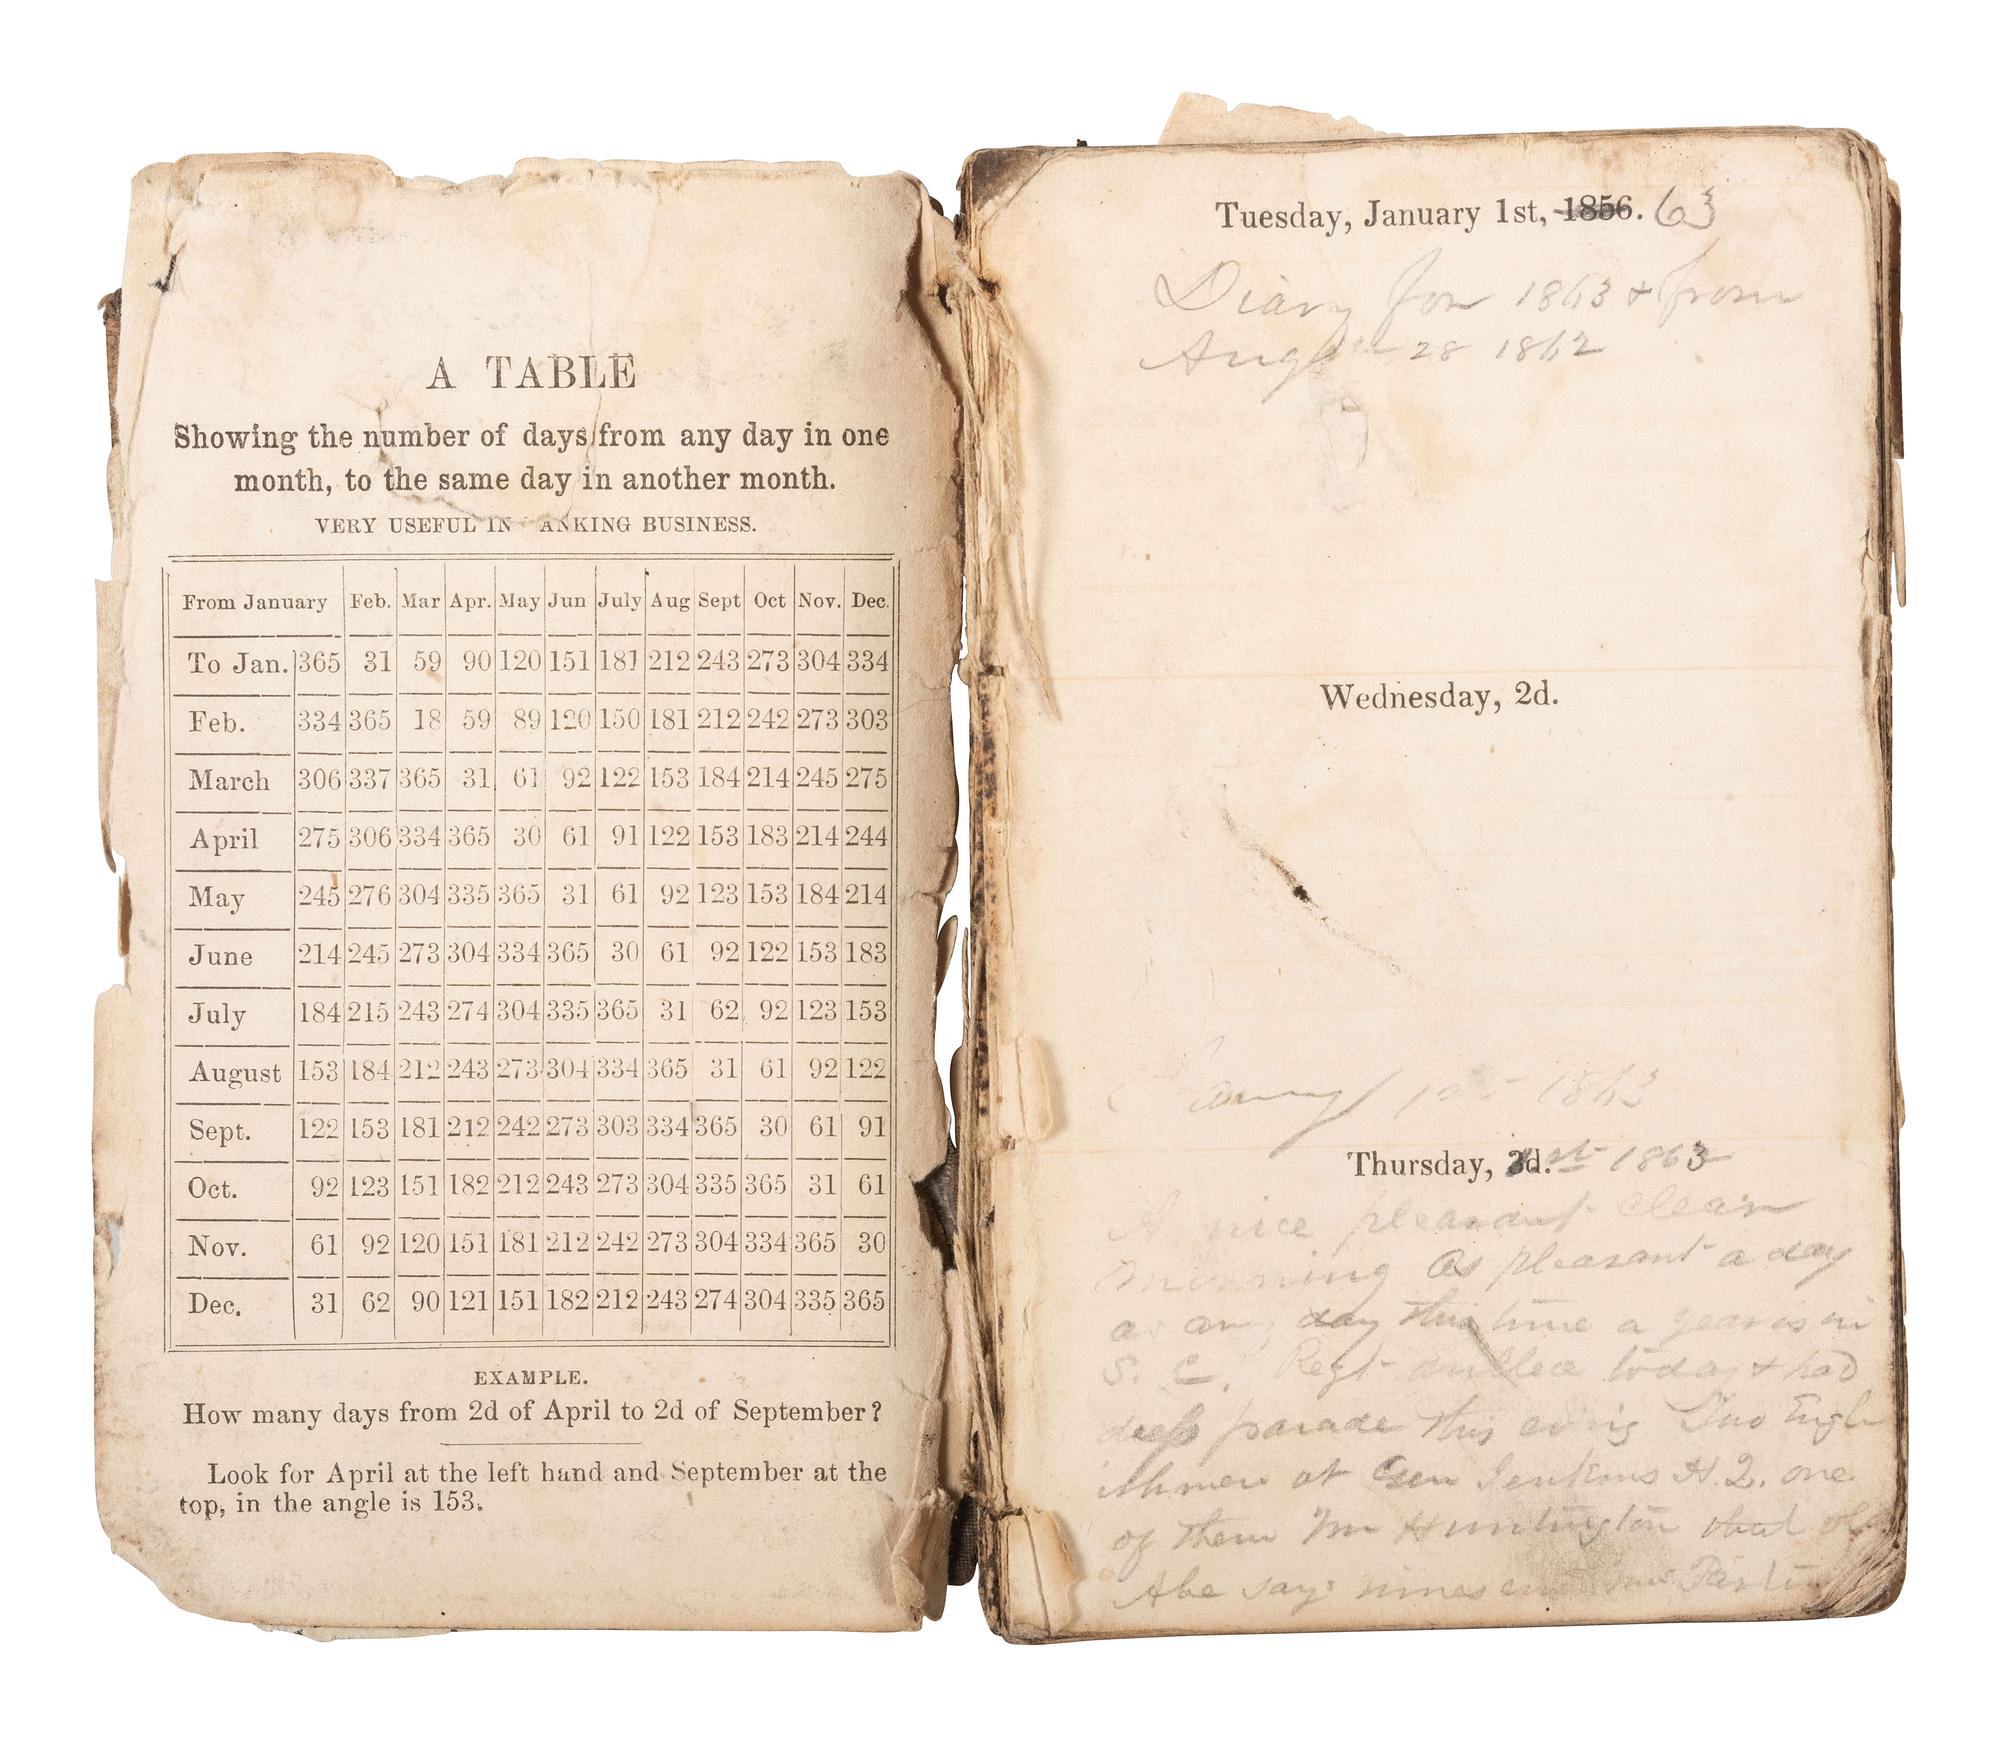 A TABLE
Showing the number of days from any day in one
month, to the same day in another month.
VERY USEFUL IN ANKING BUSINESS.
From January Feb. Mar Apr. May Jun July Aug Sept Oct Nov. Dec.
To Jan. 365 31 59 90 120 151 181 212 243 273 304 334
Feb. 334 365 18 59 89 120 150 181 212 242 273 303
March 306 337 365 31 61 92 122 153 184 214 245 275
April 275 306 334 365 30 61 91 122 153 183 214 244
May 245 276 304 335 365 31 61 92 123 153 184 214
June 214 245 273 304 334 365 30 61 92 122 153 183
July 184 215 243 274 304 335 365 31 62 92 123 153
August 153 184 212 243 273 304 334 365 31 61 92 122
Sept. 122 153 181 212 242 273 303 334 365 30 61 91
Oct. 92 123 151 182 212 243 273 304 335 365 31 61
Nov. 61 92 120 151 181 212 242 273 304 334 365 30
Dec. 31 62 90 121 151 182 212 243 274 304 335 365
EXAMPLE.
How many days from 2d of April to 2d of September?
Look for April at the left hand and September at the
top, in the angle is 153.
Tuesday, January 1st, 1856. 63
Diary for 1863 & from
Aug 28 1862
Wednesday, 2d.
1st 1863
Thursday, 3d. 1st 1863
A nice pleasant clear
morning As pleasant a day
as any day this time a year is in
S. C. Regt drilled today & had
dress parade this evnig Two Engl
ishmen at Gen Jenkins H. Q. one
of them Mr Huntington that old
Abe says